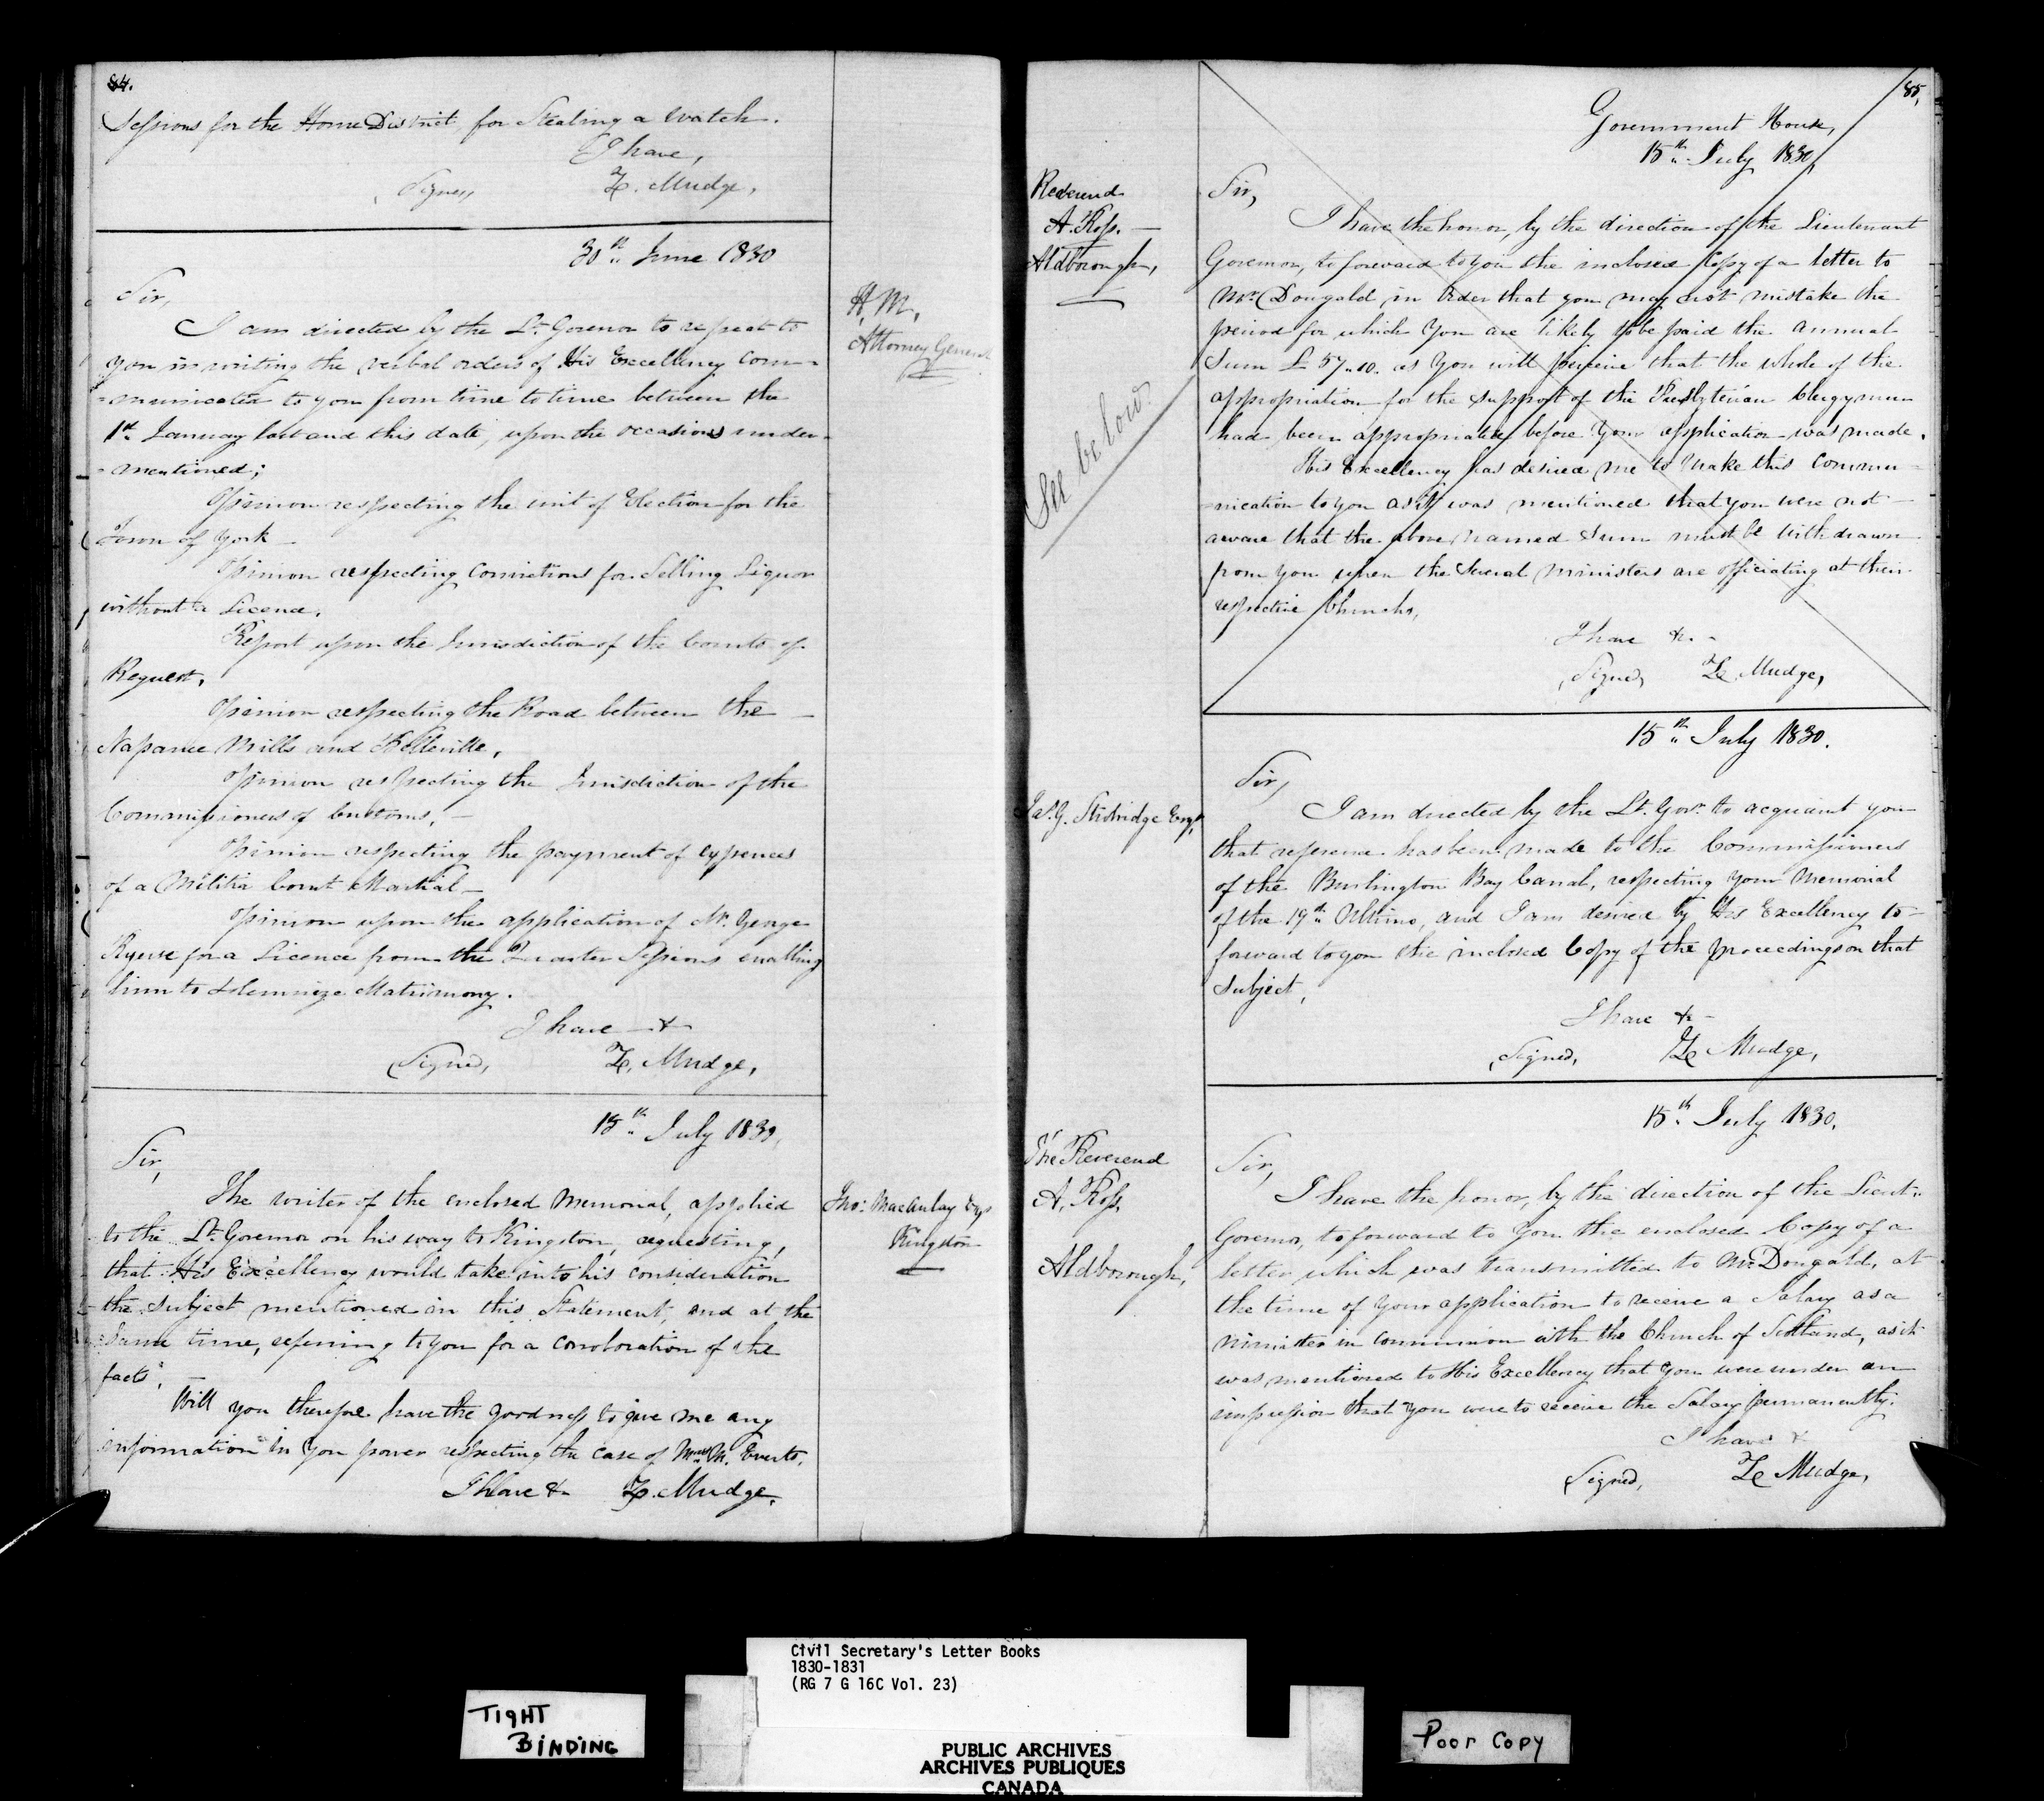 84.
Sessions for the Home District for Stealing a Watch.
I have,
Signed, Z. Mudge,
30th June 1830
Sir,
I am directed by the Lt. Governor to repeat to
you in writing the verbal orders of His Excellency com-
-municated to you from time to time between the
1st January last and this date, upon the occasions under-
-mentioned;
Opinion respecting the writ of Election for the
Town of York
Opinion respecting Convictions for Selling Liquor
without a Licence,
Report upon the Jurisdiction of the Courts of
Request,
Opinion respecting the Road between the
Napanee Mills and Belleville,
Opinion respecting the Jurisdiction of the
Commissioners of Customs,
Opinion respecting the payment of expences
of a Militia Court Martial
Opinion upon the application of Mr. George
Ryerse for a Licence from the Quarter Sessions enabling
him to Solemnize Matrimony.
I have &
Signed, Z. Mudge,
H. M.
Attorney General
15th July 1830,
Sir,
The writer of the enclosed Memorial, applied
to the Lt. Governor on his way to Kingston, requesting,
that His Excellency would take into his consideration
the subject mentioned in this Statement, and at the
same time, refering to you for a corroboration of the
facts,
Will you therefore have the goodness to give me any
information in you power respecting the case of M. Everts,
I have & Z. Mudge,
Jno. Macaulay Esqr
Kingston
85,
Government House,
15th July 1830,
Reverend
A. Ross.
Aldborough,
See below
Sir,
I have the honor, by the direction of the Lieutenant
Governor, to forward to you the inclosed Copy of a letter to
Mr. Dougald in order that you may not mistake the
period for which you are likely to be paid the annual
Sum £57.10. as you will perceive that the whole of the
appropriation for the support of the Presbyterian Clergymen
had been appropriated before your application was made.
His Excellency has desired me to make this commu-
-nication to you as it was mentioned that you were not
aware that the above named Sum must be withdrawn
from you when the Several Ministers are officiating at their
respective Churchs,
I have &c.
Signed, Z. Mudge,
15th July 1830.
Jas. G. Strobridge Esqr,
Sir,
I am directed by the Lt. Govr. to acquaint you
that reference has been made to the Commissioners
of the Burlington Bay Canal, respecting your Memorial
of the 19th Ultimo, and I am desired by His Excellency to
forward to you the inclosed Copy of the proceedings on that
subject,
I have &c
Signed, Z Mudge,
15th July 1830.
The Reverend
A. Ross,
Aldborough,
Sir,
I have the honor, by the direction of the Lieut.
Governor, to forward to you the enclosed Copy of a
letter which was transmitted to Mr. Dougald, at
the time of your application to receive a Salary as a
minister in communion with the Church of Scotland, as it
was mentioned to His Excellency that you were under an
impression that you were to receive the Salary permanently.
I have &
Signed, Z Mudge,
Civil Secretary's Letter Books
1830-1831
(RG 7 G 16C Vol. 23)
TIGHT
BINDING
Poor Copy
PUBLIC ARCHIVES
ARCHIVES PUBLIQUES
CANADA